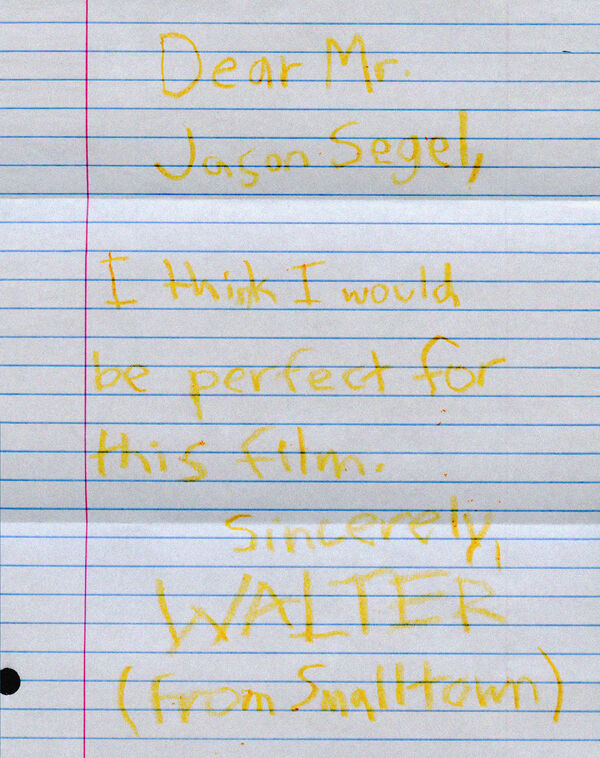 Dear Mr.
Jason Segel,
I think I would
be perfect for
this film.
Sincerely,
WALTER
(From Smalltown)